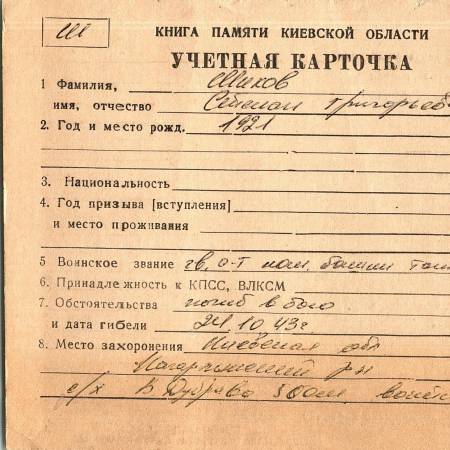 Ш
КНИГА ПАМЯТИ КИЕВСКОЙ ОБЛАСТИ
УЧЕТНАЯ КАРТОЧКА
1 Фамилия, Шихов
имя, отчество Степан Григорьев
2. Год и место рожд. 1921
3. Национальность
4. Год призыва [вступления]
и место проживания
5 Воинское звание гв. с-т ком. башни тан
6. Принадлежность к КПСС, ВЛКСМ
7. Обстоятельства погиб в бою
и дата гибели 24 10 43г.
8. Место захоронения Киевская обл
р-н
с/х 800м